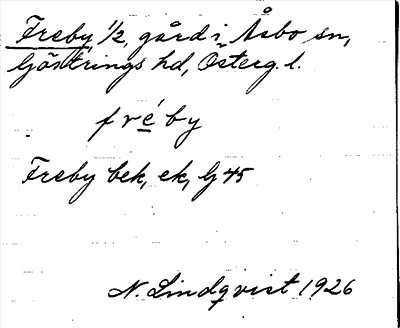 Freby, 1/2, gård i Åsbo sn,
Göstrings hd, Österg. l.
fréby
Freby bek, ek, G 45
N. Lindqvist 1926